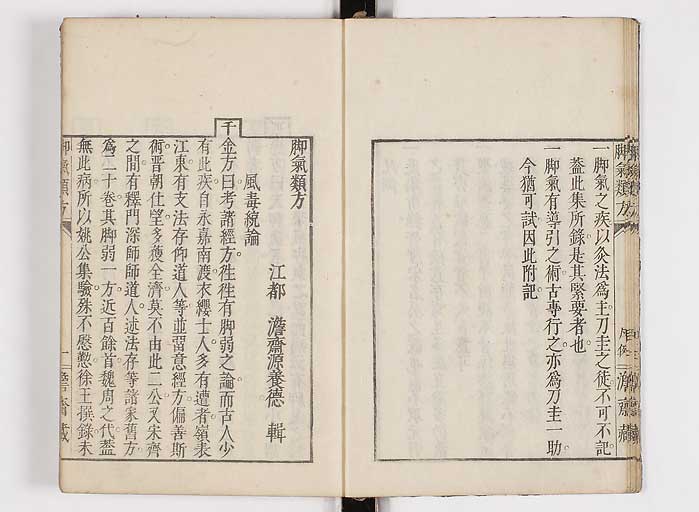 脚氣類方 澹齋藏
一脚氣之疾以灸法爲主刀圭之徒不可不記
葢此集所錄是其緊要者也
一脚氣有導引之術古專行之亦爲刀圭一助
今猶可試因此附記
脚氣類方
江都 澹齋源養德 輯
風毒統論
千金方曰考諸經方徃徃有脚弱之論而古人少
有此疾自永嘉南渡衣纓士人多有遭者嶺表
江東有支法存仰道人等並留意經方偏善斯
術晋朝仕望多獲全濟莫不由此二公又宋齊
之間有釋門深師師道人述法存等諸家舊方
爲三十卷其脚弱一方近百餘首魏周之代葢
無此病所以姚公集驗殊不慇懃徐王撰錄未
脚氣類方 一 澹齋藏